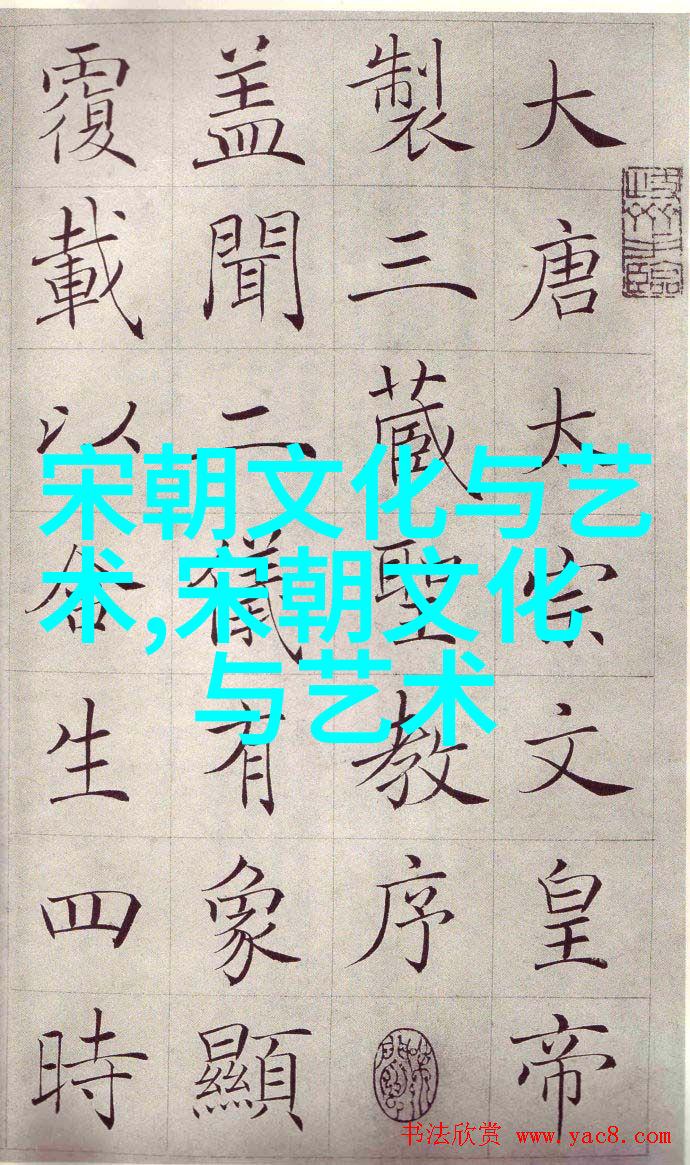 大唐太宗文皇帝
製三藏聖教序
盖聞二儀有象顯
覆載以含生四時
宋朝文化与艺
术,宋朝文化
与艺术
书法欣赏 www.yac8.com